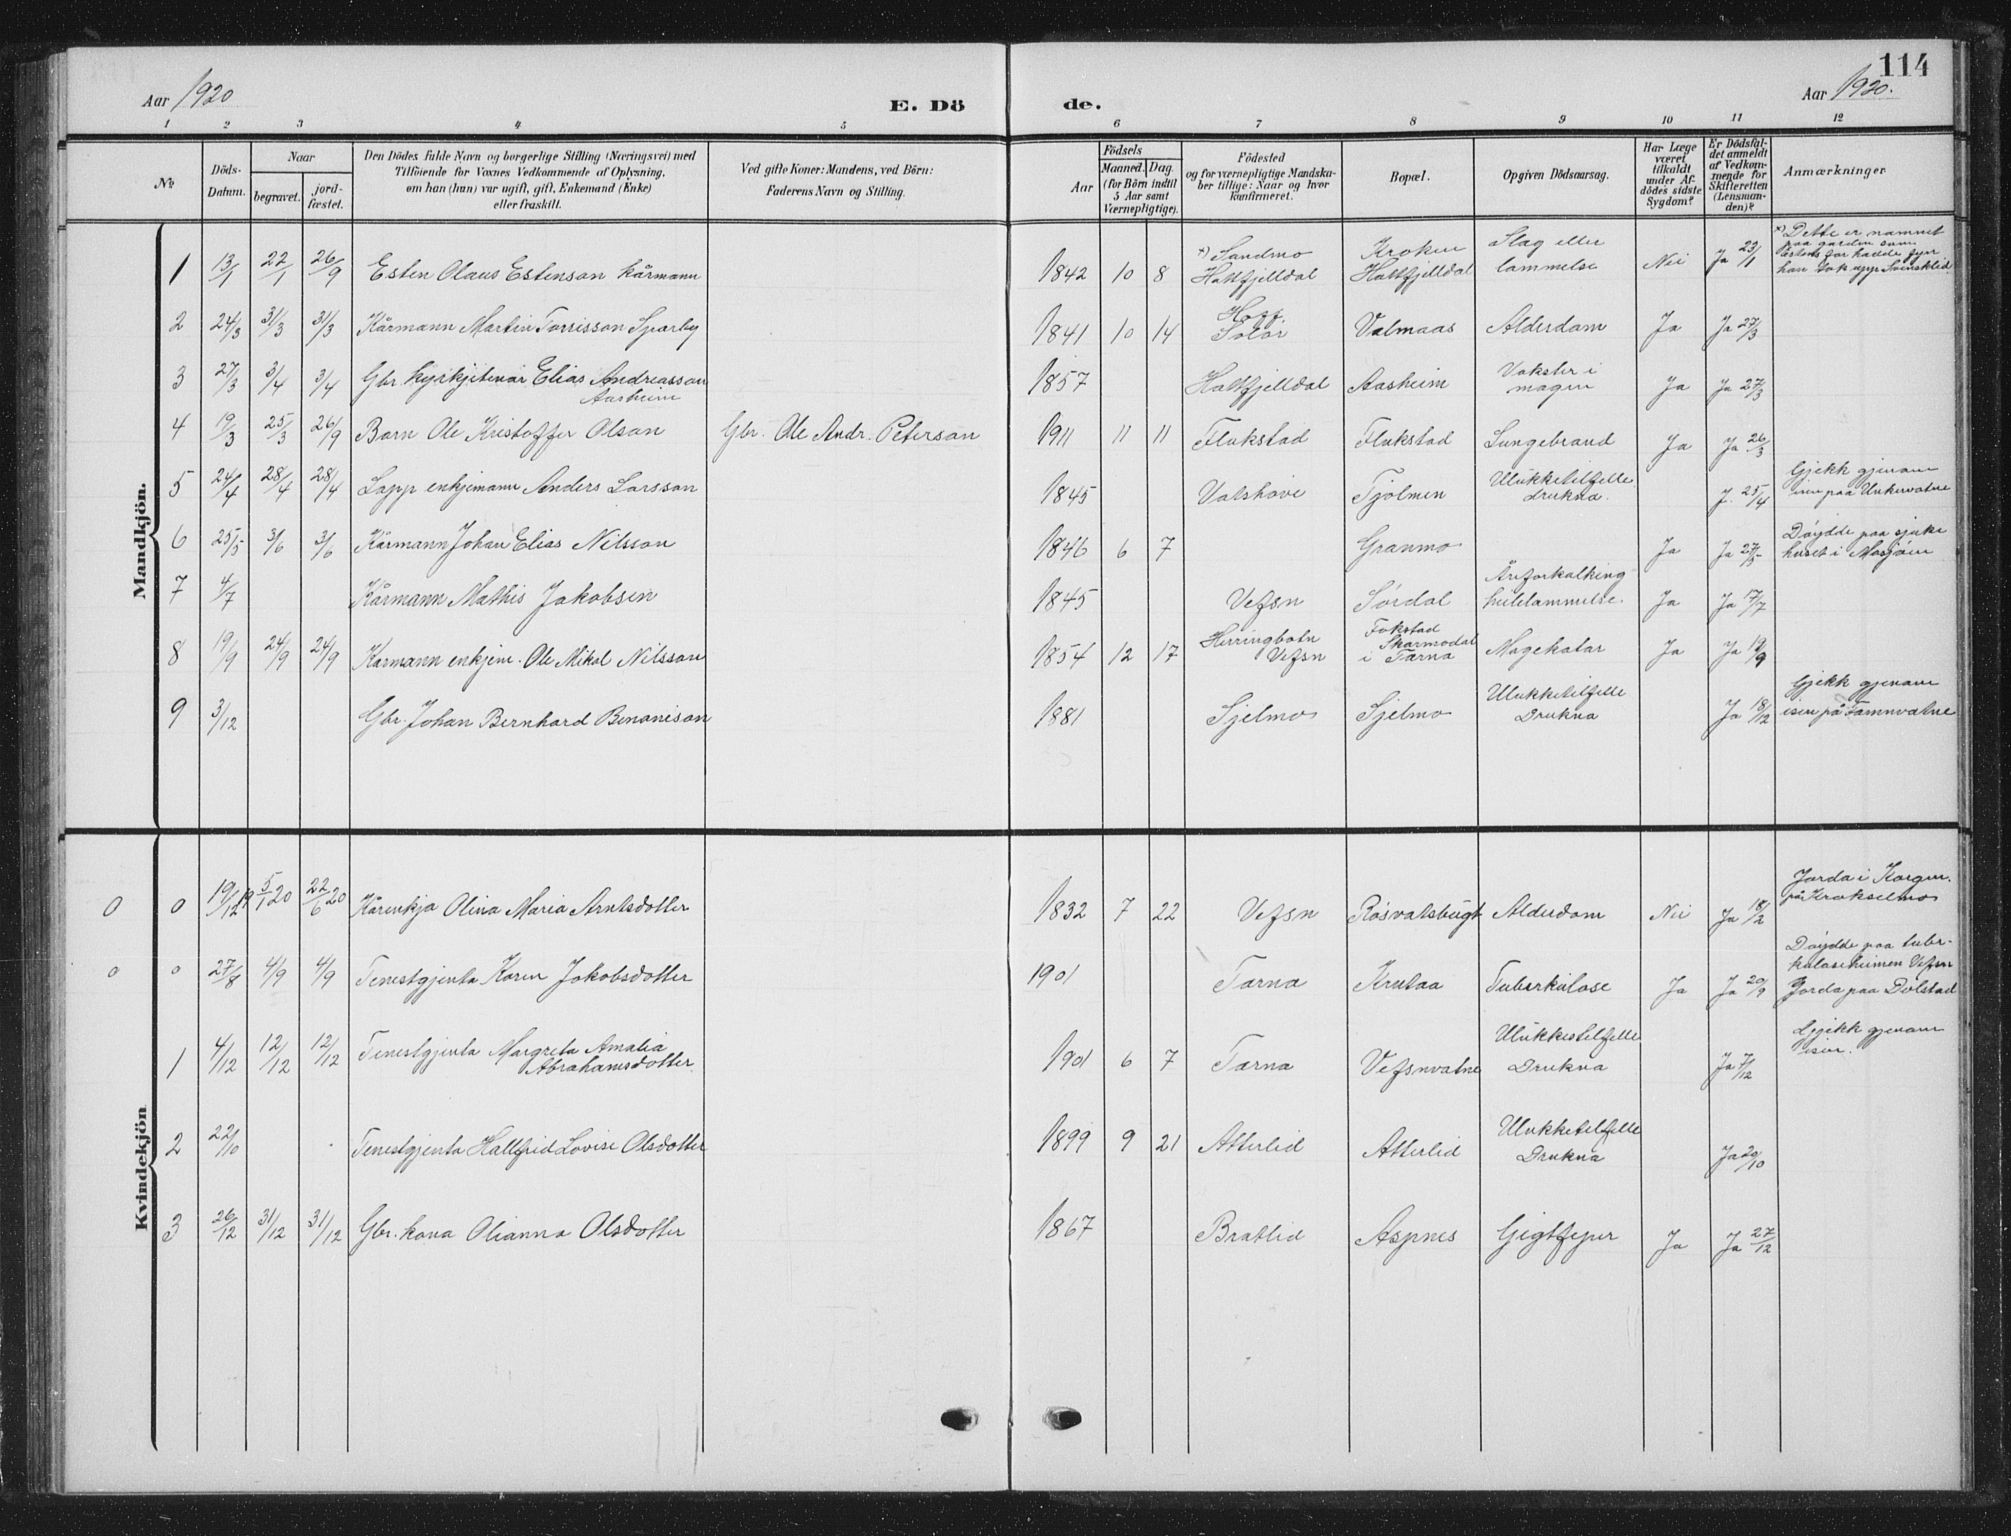 114
Aar 1920
E. Dö
de.
Aar 1920.
1 2 3 4 5 6 7 8 9 10 11 12
Nr.
Döds-
Datum.
Naar
begravet.
jord-
fæstet.
Den Dödes fulde Navn og borgerlige Stilling (Næringsvei) med
Tilföiende for Voxnes Vedkommende af Oplysning,
om han (hun) var ugift, gift, Enkemand (Enke)
eller fraskilt.
Ved gifte Koner: Mandens, ved Börn:
Faderens Navn og Stilling.
Födsels
Aar
Maaned. Dag.
(for Börn indtil
5 Aar samt
Værnepligtige).
Födested
og for værnepligtige Mandska-
ber tillige: Naar og hvor
konfirmeret.
Bopæl.
Opgiven Dödsaarsag.
Har Læge
været
tilkaldt
under Af-
dödes sidste
Sygdom?
Er Dödsfal-
det anmeldt
af Vedkom-
mende for
Skifteretten
(Lensman-
den)?
Anmærkninger
Mandkjön.
1 13/1 22/1 26/9 Esten Olaus Estenson kårmann 1842 10 8 x) Sandmo Hattfjelldal Kroken Hattfjelldal Slag eller lammelse Nei Ja 23/1 x) Dette er namnet
paa garden som
Estens far hadde fyrr
han tok upp Svensklid
2 24/3 31/3 31/3 Kårmann Martin Torrisson Sparby 1841 10 14 Hoff. Solör Valmaas Alderdom Ja Ja 27/3
3 27/3 3/4 3/4 Gbr. kyrkjetenar Elias Andreasson Aasheim 1857 Hattfjelldal Aasheim Vokster i magen Ja Ja 27/3
4 19/3 25/3 26/9 Barn Ole Kristoffer Olson Gbr. Ole Andr. Peterson 1911 11 11 Flukstad Flukstad Lungebrand Ja Ja 26/3
5 24/4 28/4 28/4 Lapp enkjemann Anders Larsson 1845 Vatshove Tjolmen Ulukketilfelle drukna. J. 25/4 Gjekk gjenom
isen paa Unkervatne
6 25/5 3/6 3/6 Kårmann Johan Elias Nilsson 1846 6 7 Granmo Ja Ja 27/5 Döydde paa sjuke
huset i Mosjöen
7 4/7 Kårmann Mathis Jakobsen 1845 Vefsn Sördal Åreforkalking heilelammelse. Ja Ja 17/7
8 19/9 24/9 24/9 Kårmann enkjem. Ole Mikal Nilsson 1854 12 17 Herringbotn Vefsn Fokstad Skarmodal i Tärna Magekatar Ja Ja 19/9
9 3/12 Gbr. Johan Bernhard Benonison 1881 Sjelmo Sjelmo Ulukketilfelle Drukna Ja 18/12 Gjekk gjenom
isen på Famnvatne
Kvindekjön
0 0 19/12 19 5/1 20 22/6 20 Kårenkja Olina Maria Arntsdotter 1832 7 22 Vefsn Rösvatsbugt Alderdom Nei Ja 18/2 Jorda i Korgen.
på Krokselmo
0 0 27/8 4/9 4/9 Tenestgjenta Karen Jakobsdotter 1901 Tärna Krutaa Tuberkulose Ja Ja 20/9 Döydde paa tuber-
kuloseheimen Vefsn
Jorda paa Dolstad
1 4/12 12/12 12/12 Tenestgjenta Margreta Amalia Abrahamsdotter. 1901 6 7 Tärna Vefsnvatne Ulukkestilfelle Drukna Ja 7/12 Gjekk gjenom
isen.
2 22/10 Tenestgjenta Hallfrid Lovise Olsdotter 1899 9 21 Atterlid Atterlid Ulukketilfelle Drukna Ja 29/10
3 26/12 31/12 31/12 Gbr. kona Olianna Olsdotter 1867 Bratlid Aspnes Gigtfeper Ja Ja 27/12